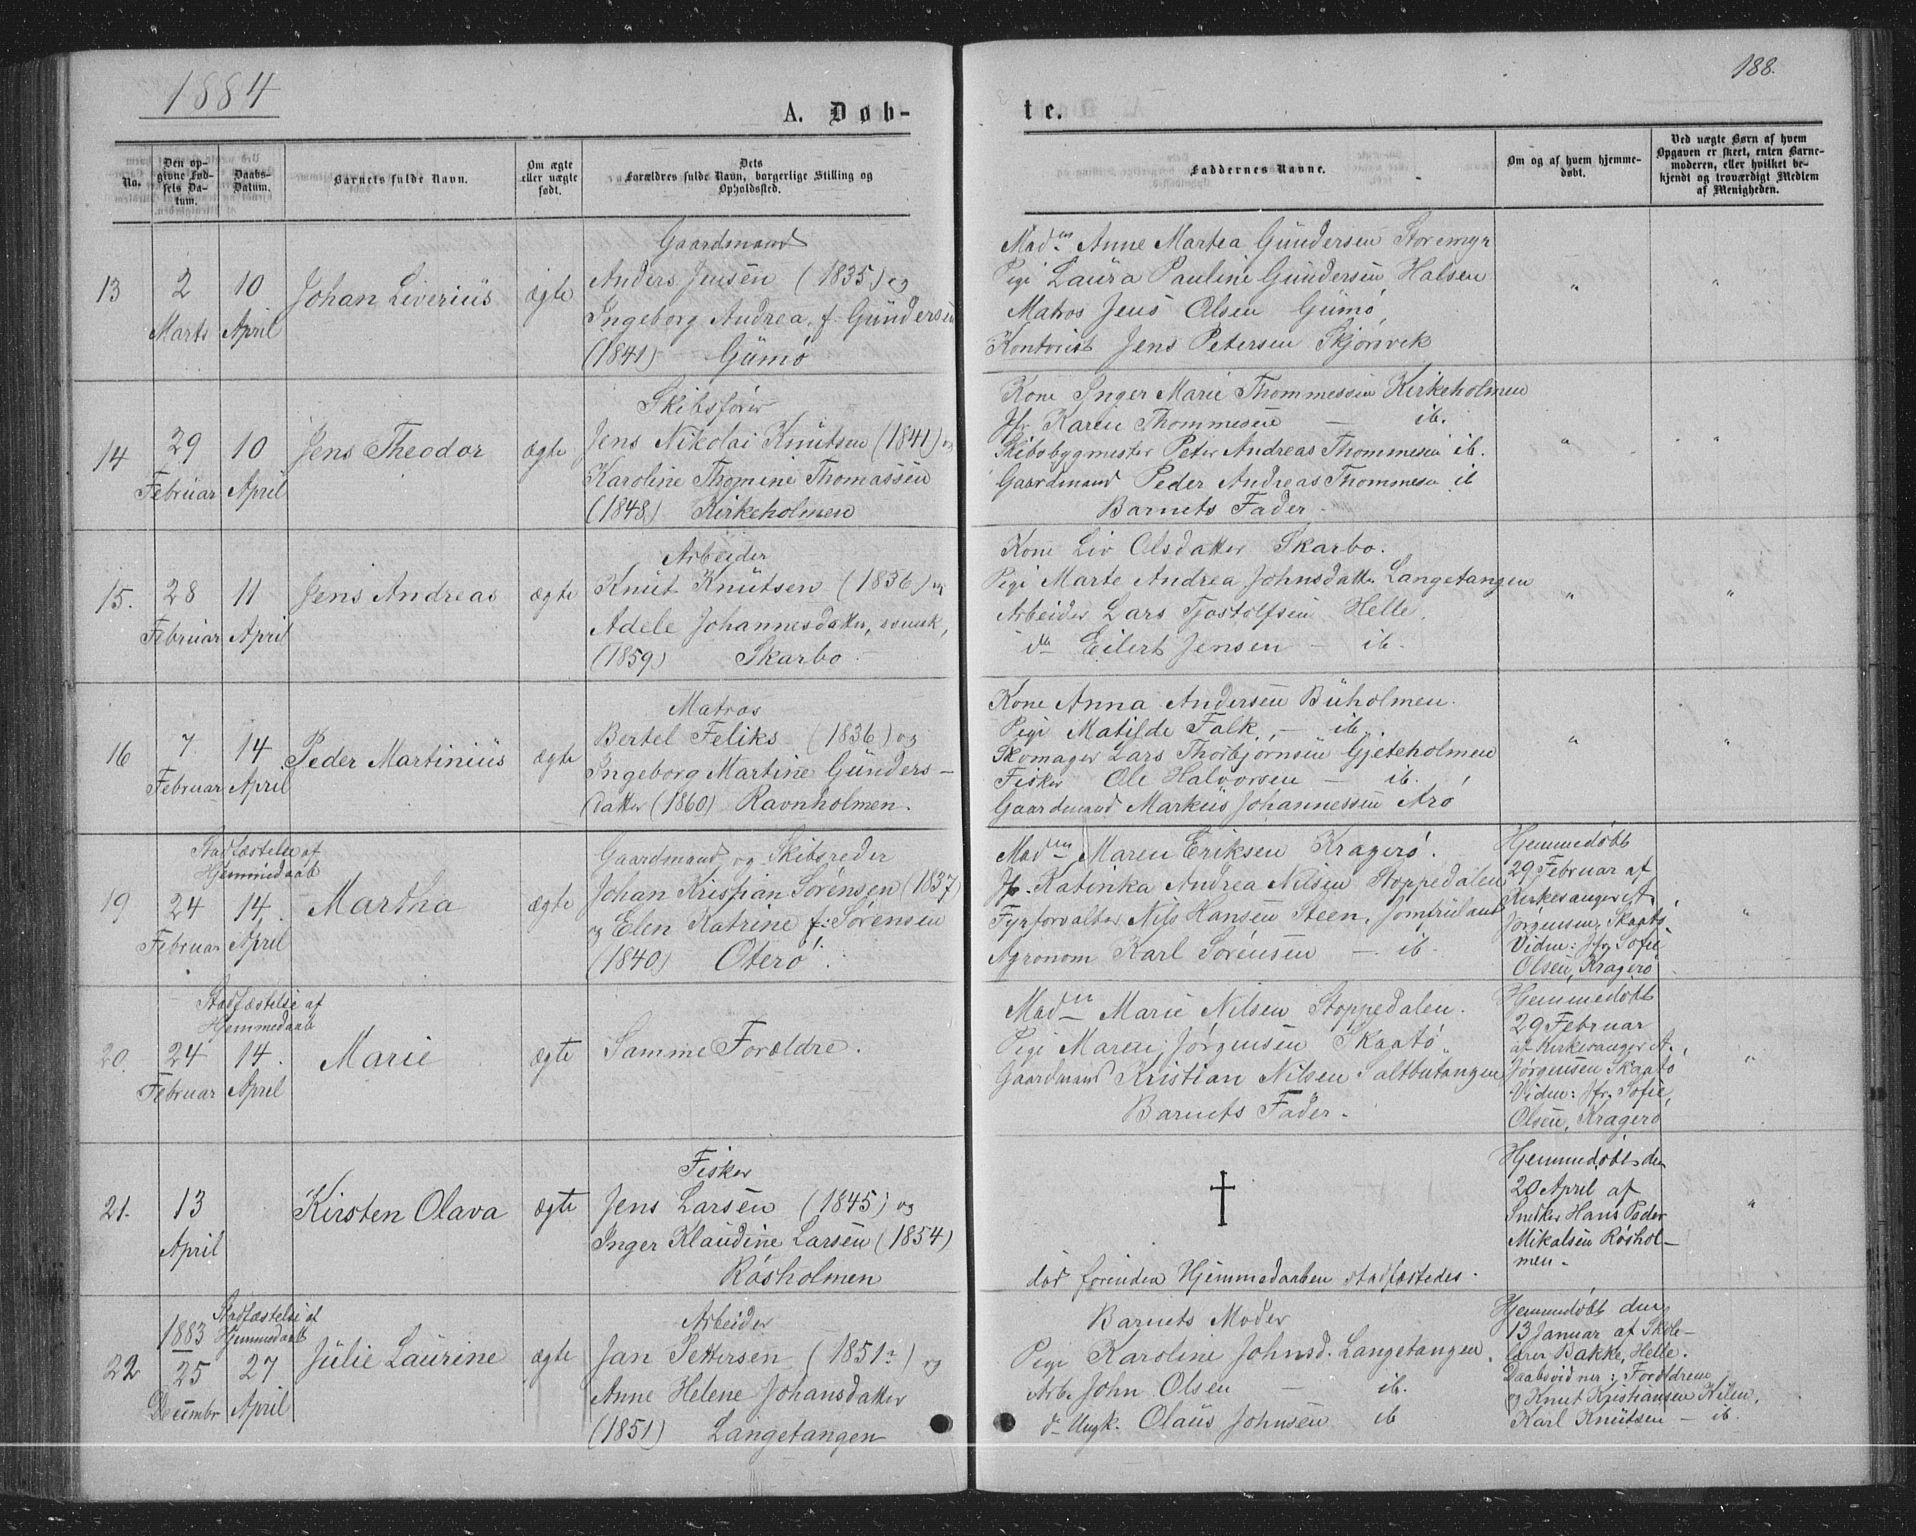 1884
188.
A. Døb-
te.
No.
Den op-
givne Fød-
sels Da-
tum.
Daabs-
Datum.
Barnets fulde Navn.
Om ægte
eller uægte
født.
Dets
Forældres fulde Navn, borgerlige Stilling og
Opholdssted.
Faddernes Navne.
Om og af hvem hjemme-
døbt.
Ved uægte Børn af hvem
Opgaven er skeet, enten Barne-
moderen, eller hvilket be-
kjendt og troværdigt Medlem
af Menigheden.
13
2
Marts
10
April
Johan Liverius
ægte
Gaardmand
Anders Jensen (1835) og
Ingeborg Andrea, f. Gundersen
(1841) Gumø
Madm Anne Martea Gundersen Storemyr
Pige Laura Pauline Gundersen, Halsen
Matros Jens Olsen Gumø
Kontorist Jens Petersen Skjørsvik
"
"
14
29
Februar
10
April
Jens Theodor
ægte
Skibsfører
Jens Nikolai Knutsen (1841) og
Karoline Thomine Thomassen
(1848) Kirkeholmen
Kone Inger Marie Thommessen Kirkeholmen
Jfr. Karen Thommesen — ib.
Skibsbygmester Peter Andreas Thommesen ib.
Gaardmand Peder Andreas Thommesen ib
Barnets Fader.
"
"
15.
28
Februar
11
April
Jens Andreas
ægte
Arbeider
Knut Knutsen (1836) og
Adele Johannesdatter, svensk,
(1859) Skarbo.
Kone Liv Olsdatter Skarbo.
Pige Marte Andrea Johnsdatter Langetangen
Arbeider Lars Tjostolfsen Helle.
do Eilert Jensen — ib.
"
"
16
7
Februar
14
April
Peder Martinius
ægte
Matros
Bertel Feliks (1836) og
Ingeborg Martine Gunders-
datter (1860) Ravnholmen.
Kone Anna Andersen Buholmen.
Pige Matilde Falk — ib.
Skomager Lars Thorbjørnsen Gjeteholmen
Fisker Ole Halvorsen — ib.
Gaardmand Markus Johannessen Arø
"
"
19
Stadfæstelse af
Hjemmedaab
24
Februar
14.
April
Martha
ægte
Gaardmand og Skibsreder
Johan Kristian Sørensen (1837)
og Elen Katrine f. Sørensen
(1840) Oterø.
Madm Maren Eriksen Kragerø.
Jfr. Katinka Andrea Nilsen Stoppedalen
Fyrforvalter Nils Hansen Steen, Jomfruland
Agronom Karl Sørensen — ib.
Hjemmedøbt
29 Februar af
Kirkesanger A.
Jørgensen, Skaatø
Vidne: Jfr. Sofie
Olsen, Kragerø
"
20.
Stadfæstelse af
Hjemmedaab
24
Februar
14.
April
Marie
ægte
Samme Forældre.
Madm Marie Nilsen Stoppedalen.
Pige Maren Jørgensen Skaatø.
Gaardmand Kristian Nilsen Saltbutangen
Barnets Fader.
Hjemmedøbt
29 Februar
af Kirkesanger A.
Jørgensen Skaatø
Vidne: Jfr. Sofie
Olsen, Kragerø
"
21.
13
April
Kirsten Olava
ægte
Fisker
Jens Larsen (1845) og
Inger Klaudine Larsen (1854)
Røsholmen
†
død forinden Hjemmedaaben stadfæstedes.
Hjemmedøbt den
20 April af
Snedker Hans Peder
Mikalsen Røshol-
men.
"
22
1883
25
Decembr
Stadfæstelse af
Hjemmedaab
27
April
Julie Laurine
ægte
Arbeider
Jan Pettersen (1851) og
Anne Helene Johansdatter
(1851) Langetangen
Barnets Moder
Pige Karoline Johnsd. Langetangen.
Arb. John Olsen — ib.
do Ungk. Olaus Johnsen ib
Hjemmedøbt den
13 Januar af Skole-
lærer Bakke, Helle.
Daabsvidner: Forældrene
og Knut Kristiansen Kilen,
Karl Knutsen — ib.